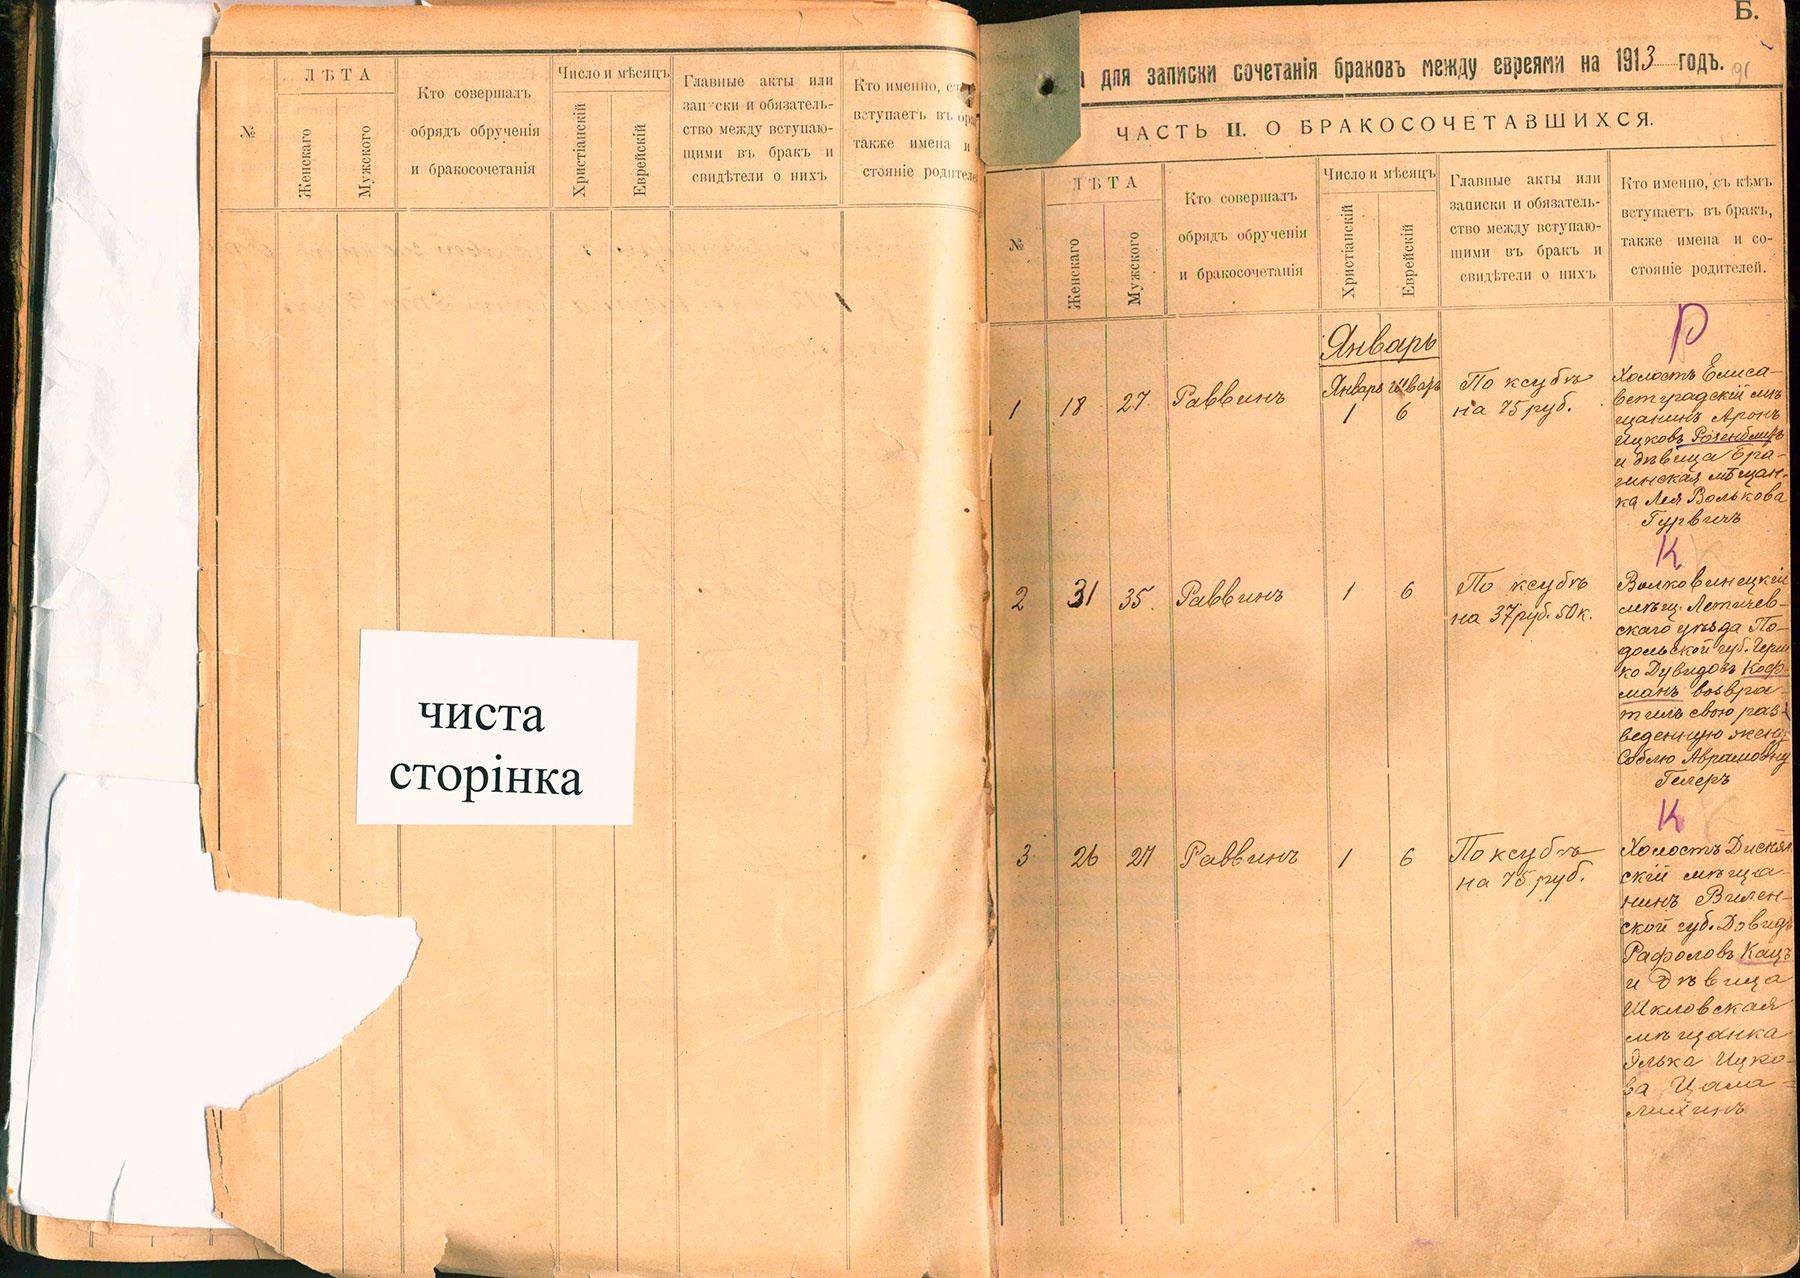 ЛѢТА
Число и мѣсяцъ
№
Женскаго
Мужского
Кто совершалъ
обрядъ обрученія
и бракосочетанія
Христіанскій
Еврейскій
Главные акты или
записки и обязатель-
ство между вступаю-
щими въ бракъ и
свидѣтели о нихъ
Кто именно, съ
вступаетъ въ брак
также имена и
стояніе родителе
чиста
сторінка
Б.
а для записки сочетанія браковъ между евреями на 1913 годъ.
91
ЧАСТЬ II. О БРАКОСОЧЕТАВШИХСЯ.
№
ЛѢТА
Женскаго
Мужского
Кто совершалъ
обрядъ обрученія
и бракосочетанія
Число и мѣсяцъ
Христіанскій
Еврейскій
Главные акты или
записки и обязатель-
ство между вступаю-
щими въ бракъ и
свидѣтели о нихъ
Кто именно, съ кѣмъ
вступаетъ въ бракъ,
также имена и со-
стояніе родителей.
Январь
Р
1 18 27 Раввинъ
Январь Шватъ
1 6
По ксубѣ
на 75 руб.
Холостъ Елиса-
ветградскій мѣ
щанинъ Аронъ
Ицковъ Розенблитъ
и дѣвица Бра-
гинская мѣщан-
ка Лея Волькова
Гурвичъ
К
2 31 35. Раввинъ 1 6
По ксубѣ
на 37 руб. 50 к.
Волковинецкій
мѣщ. Летичев-
скаго уѣзда По-
дольской губ. Герш
ко Дувидовъ Коф-
манъ возвра-
тилъ свою раз-
веденную жену
Соблю Аврамовну
Гелеръ
К
3 26 27 Раввинъ 1 6
По ксубѣ
на 75 руб.
Холостъ Дисней
скій мѣща-
нинъ Вилен-
ской губ. Довидъ
Рафоловъ Кацъ
и дѣвица
Шкловская
мѣщанка
Элька Ицко-
ва Цама-